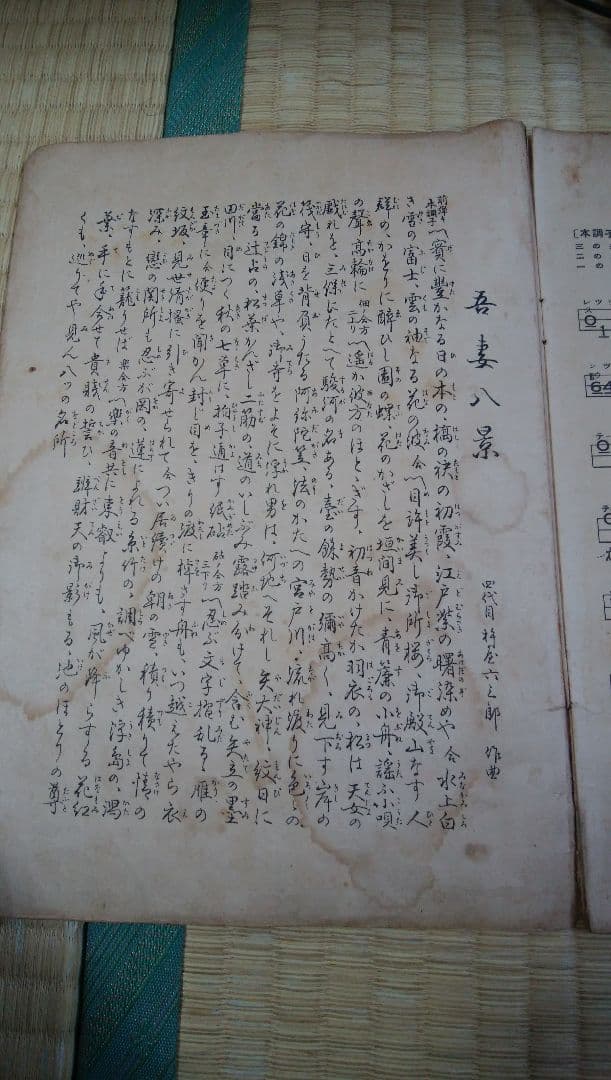 吾妻八景
四代目 杵屋六三郎 作曲
前弾 本調子 〽実に豊かなる日の本の、橋の袂の初霞、江戸紫の曙染めや 合 水上白
き雪の富士、雲の袖なる花の波 合 〽目許美し御所桜、御殿山なす人
群の、かをりに酔ひし園の蝶、花のかざしを垣間見に、青簾の小舟、謡ふ小唄
の声高輪に 佃合方 二上り 〽遥か彼方のほとゝぎす、初音かけたか羽衣の、松は天女の
戯れを、三保にたとへて駿河の名ある、台の余勢の弥高く、見下す岸の
筏守、日を背負うたる阿弥陀笠、法のかたへの宮戸川、流れ渡りに色々の、
花の錦の浅草や、御寺をよそに浮れ男は、何地へそれし矢大神、紋日に
当る辻占の、松葉かんざし二筋の、道のいしぶみ露踏み分けて、含む矢立の墨
田川、目につく秋の七草に、拍子通はす紙砧 砧ノ合方 三下り 〽忍ぶ文字摺乱るゝ雁の
玉章に 合 便りを聞かん封じ目を、きりの渡に棹さす舟も、いつ越えたやら衣
紋坂、見世清掻に引き寄せられて 合 つい居続けの朝の雪、積り積りて情の
深み、恋の関所も忍ぶが岡の、蓮によれる糸竹の、調べゆかしき浮島の、潟
なすもとに籠りせば 楽合方 〽楽の音共に東叡よりも、風が降らする花紅
葉、手に手合せて貴賤の誓ひ、弁財天の御影もる、池のほとりの尊
くも、巡りてや見ん八ツの名所
[本調子
一の
二の
三の